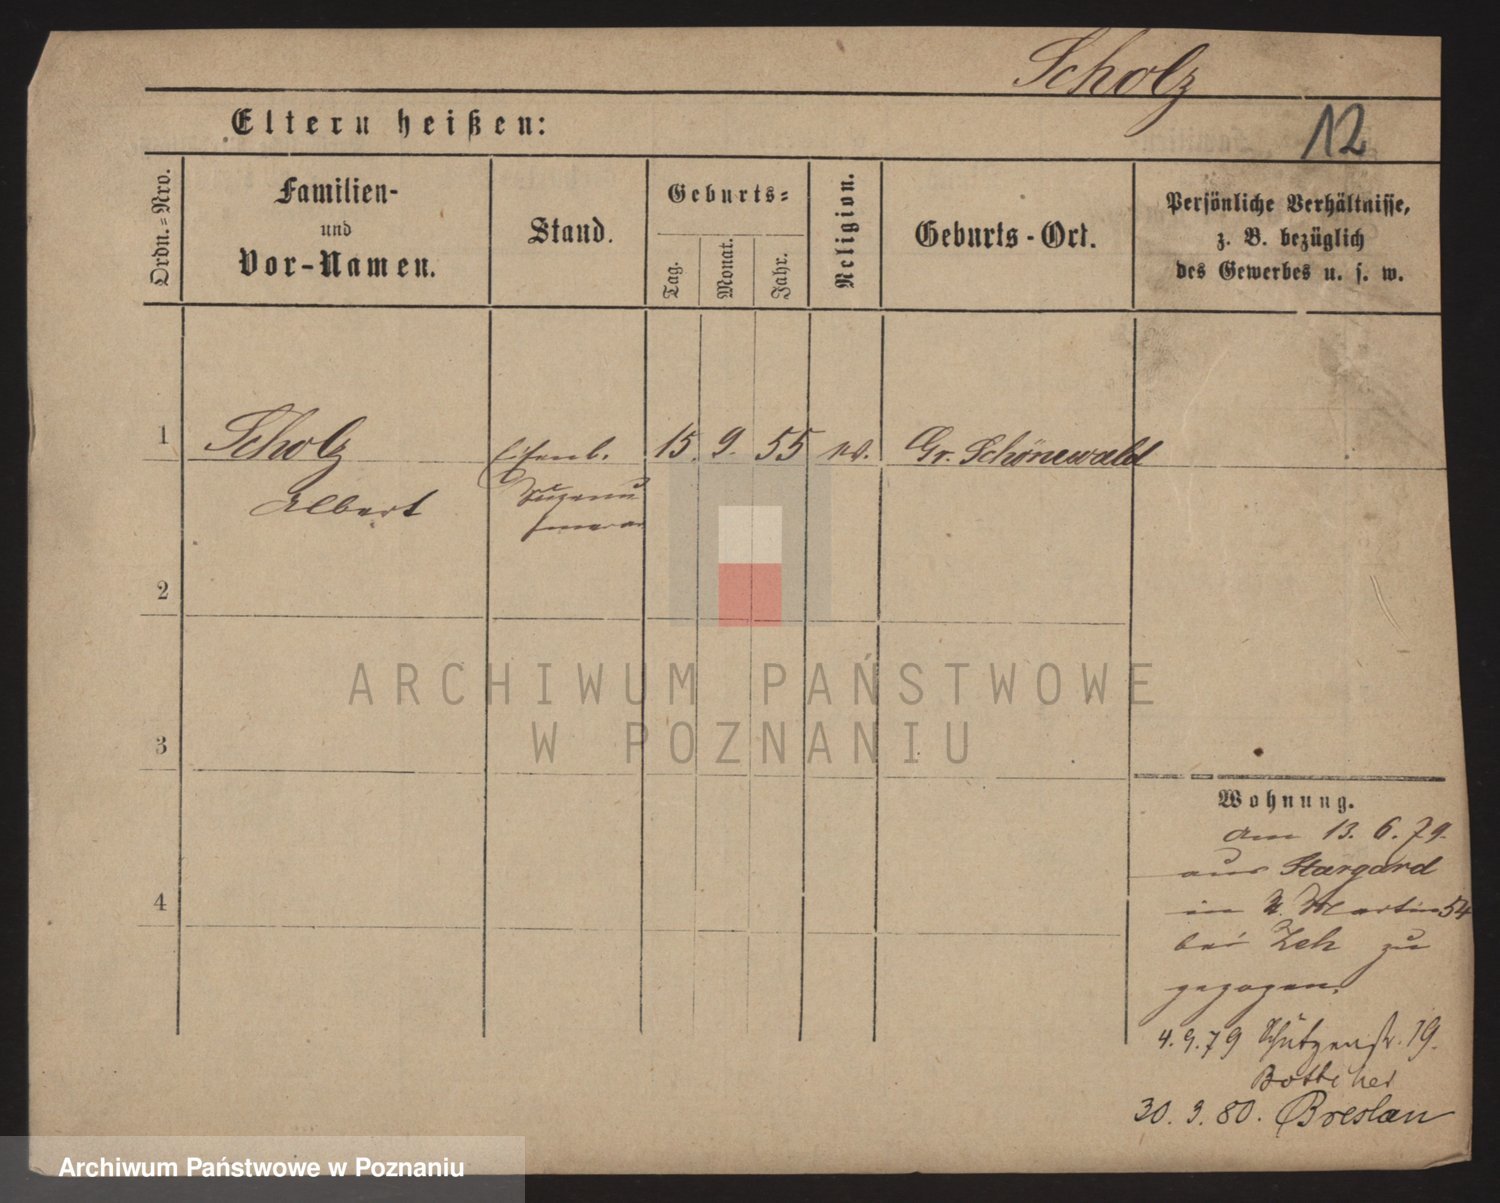 Scholz
12
Eltern heißen:
Ordn.=Nro.
Familien-
und
Vor-Namen.
Stand.
Geburts=
Tag.
Monat.
Jahr.
Religion.
Geburts-Ort.
Persönliche Verhältnisse,
z. B. bezüglich
des Gewerbes u. s. w.
1
Scholz
Eisenb.
15. 9. 55
Gr. Schönewald
Albert
2
3
4
Wohnung.
am 13. 6. 79.
aus Stargard
in St. Martin 54
bei Zeh zu
gezogen.
4. 9. 79 Schützenstr. 19.
Bottcher
30. 3. 80. Breslau
ARCHIWUM PAŃSTWOWE
W POZNANIU
Archiwum Państwowe w Poznaniu